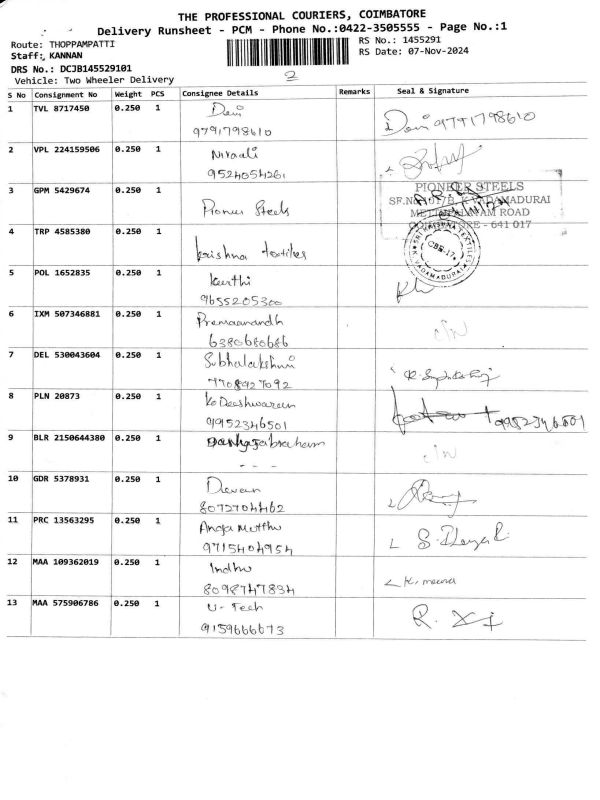 THE PROFESSIONAL COURIERS, COIMBATORE
Delivery Runsheet - PCM - Phone No.:0422-3505555 - Page No.:1
Route: THOPPAMPATTI
RS No.: 1455291
Staff: KANNAN
RS Date: 07-Nov-2024
DRS No.: DCJB145529101
2
Vehicle: Two Wheeler Delivery
S No Consignment No Weight PCS Consignee Details Remarks Seal & Signature
1 TVL 8717450 0.250 1 Devi
9791798610 Devi 9791798610
2 VPL 224159506 0.250 1 Nivaali
9524054261
3 GPM 5429674 0.250 1 Pionus Steels
PIONEER STEELS
VADAMADURAI
ROAD
- 641 017
4 TRP 4585380 0.250 1 krishna textiles
SRI KRISHNA TEXTILES
CBE-17
K. VADAMADURAI
5 POL 1652835 0.250 1 keerthi
9655205300
6 IXM 507346881 0.250 1 Premaanandh
6380680686 c/w
7 DEL 530043604 0.250 1 Subhalakshmi
7708927092
8 PLN 20873 0.250 1 Kodeeshwaran
9952346501 9952346501
9 BLR 2150644380 0.250 1
- - - c/w
10 GDR 5378931 0.250 1 Devan
8072704462
11 PRC 13563295 0.250 1 Anga Muthu
9715404954
12 MAA 109362019 0.250 1 Indhu
8098747834
13 MAA 575906786 0.250 1 U-Tech
9159666673